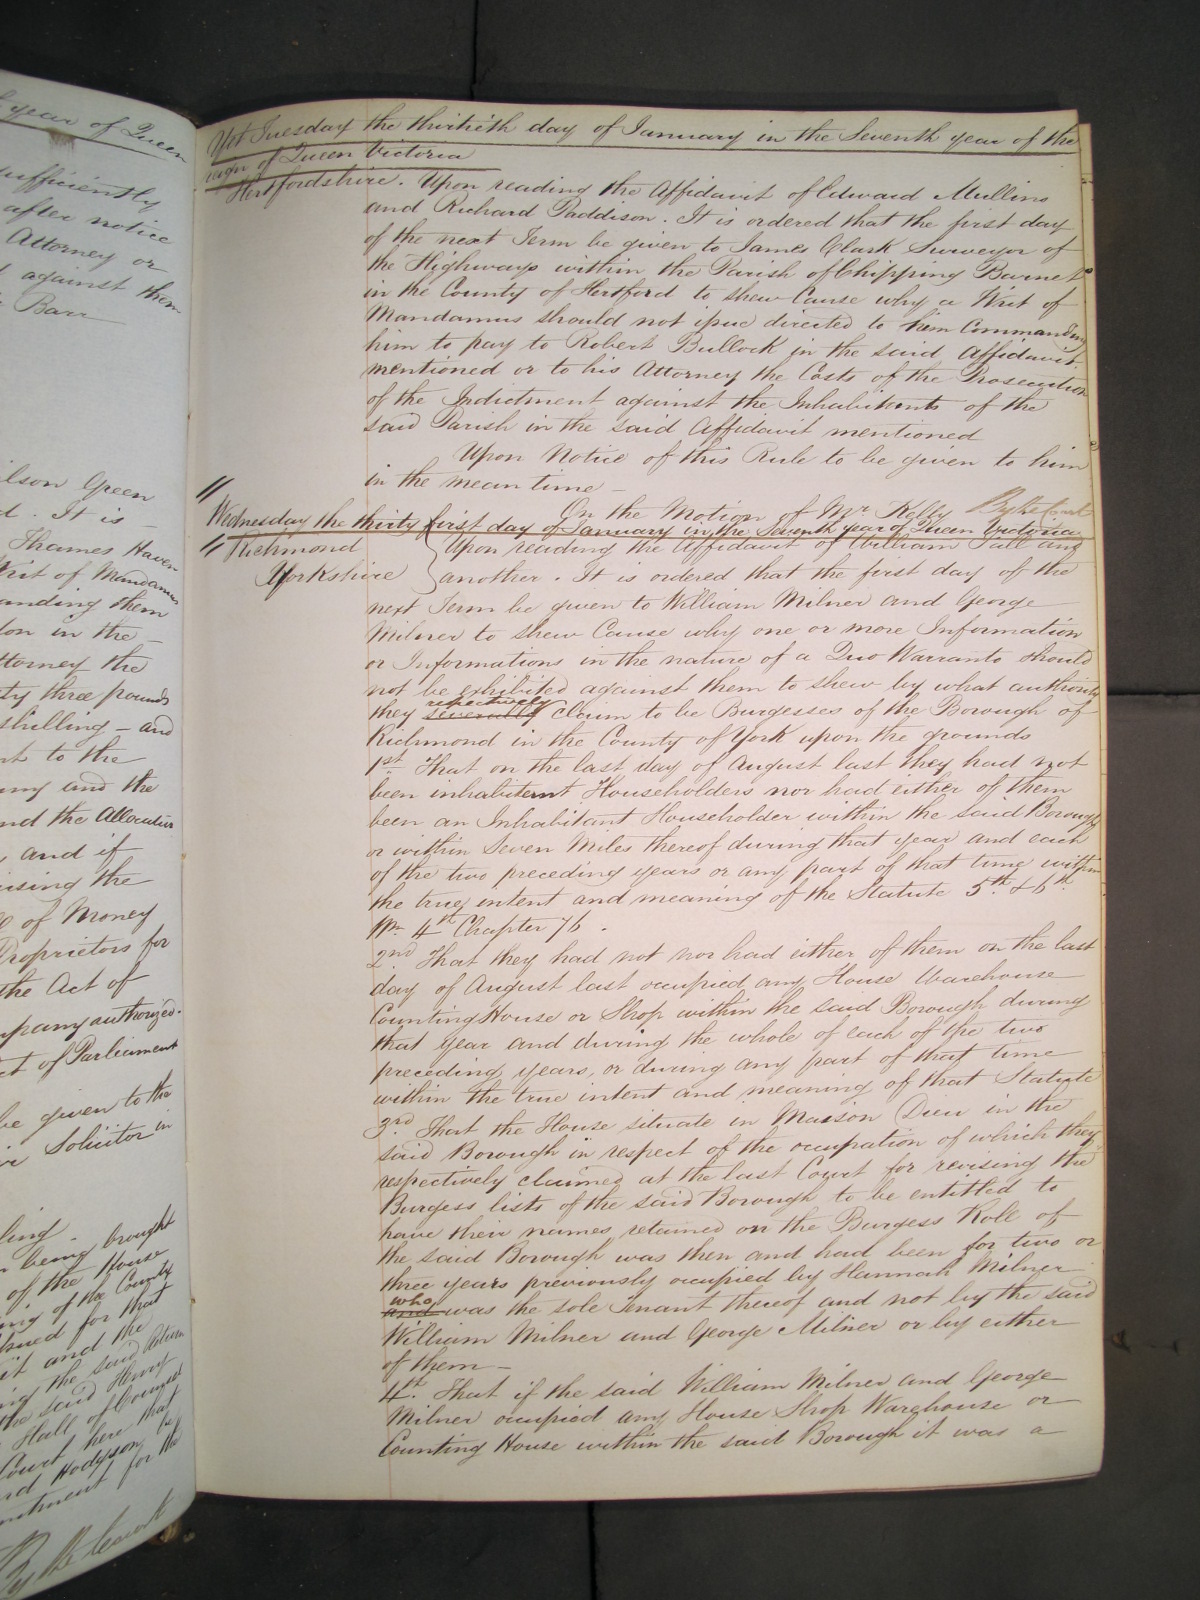 year of Queen
sufficiently
after notice
Attorney or
against them
Barr
ilson Green
d. It is
Thames Haven
Writ of Mandamus
anding them
don in the
ttorney the
ty three pounds
shilling - and
nt to the
any and the
and the Allocatur
, and if
ising the
of Money
Proprietors for
the Act of
mpany authorized.
ct of Parliament
be given to the
Solicitor in
being brought
of the House
ing of the County
that
it and the
the said
the said Henry
Hall of
Court here that
Hodgson be
for the
By the Court
Yet Tuesday the thirtieth day of January in the Seventh year of the
reign of Queen Victoria
Hertfordshire. Upon reading the Affidavit of Edward Mullins
and Richard Paddison. It is ordered that the first day
of the next Term be given to James Clark Surveyor of
the Highways within the Parish of Chipping Barnet
in the County of Hertford to shew Cause why a Writ of
Mandamus should not issue directed to him Commanding
him to pay to Robert Bullock in the said Affidavit
mentioned or to his Attorney the Costs of the Prosecution
of the Indictment against the Inhabitants of the
said Parish in the said Affidavit mentioned
Upon Notice of this Rule to be given to him
in the mean time -
On the Motion of Mr. Kelly By the Court
Wednesday the thirty first day of January in the Seventh year of Queen Victoria
Richmond Upon reading the Affidavit of William and
Yorkshire another. It is ordered that the first day of the
next Term be given to William Milner and George
Milner to shew Cause why one or more Information
or Informations in the nature of a Quo Warranto should
not be exhibited against them to shew by what authority
respectively
they severally claim to be Burgesses of the Borough of
Richmond in the County of York upon the grounds
1st That on the last day of August last they had not
been inhabitant Householders nor had either of them
been an Inhabitant Householder within the said Borough
or within Seven Miles thereof during that year and each
of the two preceding years or any part of that time within
the true intent and meaning of the Statute 5th & 6th
Wm. 4th Chapter 76.
2nd That they had not nor had either of them on the last
day of August last occupied any House Warehouse
Counting House or Shop within the said Borough during
that year and during the whole of each of the two
preceding years, or during any part of that time
within the true intent and meaning of that Statute
3rd That the House situate in Maison Dieu in the
said Borough in respect of the occupation of which they
respectively claimed at the last Court for revising the
Burgess lists of the said Borough to be entitled to
have their names retained on the Burgess Roll of
the said Borough was then and had been for two or
three years previously occupied by Hannah Milner
who
and was the sole Tenant thereof and not by the said
William Milner and George Milner or by either
of them -
4th. That if the said William Milner and George
Milner occupied any House Shop Warehouse or
Counting House within the said Borough it was a